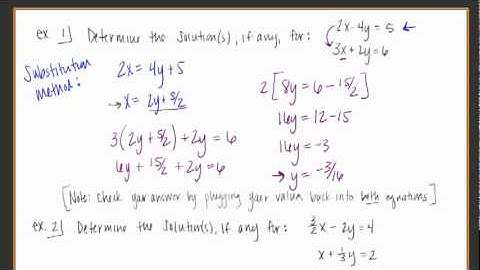 ex. 1] Determine the solution(s), if any, for: 2x - 4y = 5 ←
3x + 2y = 6
Substitution method:
2x = 4y + 5
→ x = 2y + 5/2
3(2y + 5/2) + 2y = 6
6y + 15/2 + 2y = 6
2[8y = 6 - 15/2]
16y = 12 - 15
16y = -3
→ y = -3/16
[Note: check your answer by plugging your values back into both equations]
ex. 2] Determine the solution(s), if any for: 3/2x - 2y = 4
x + 1/3y = 2